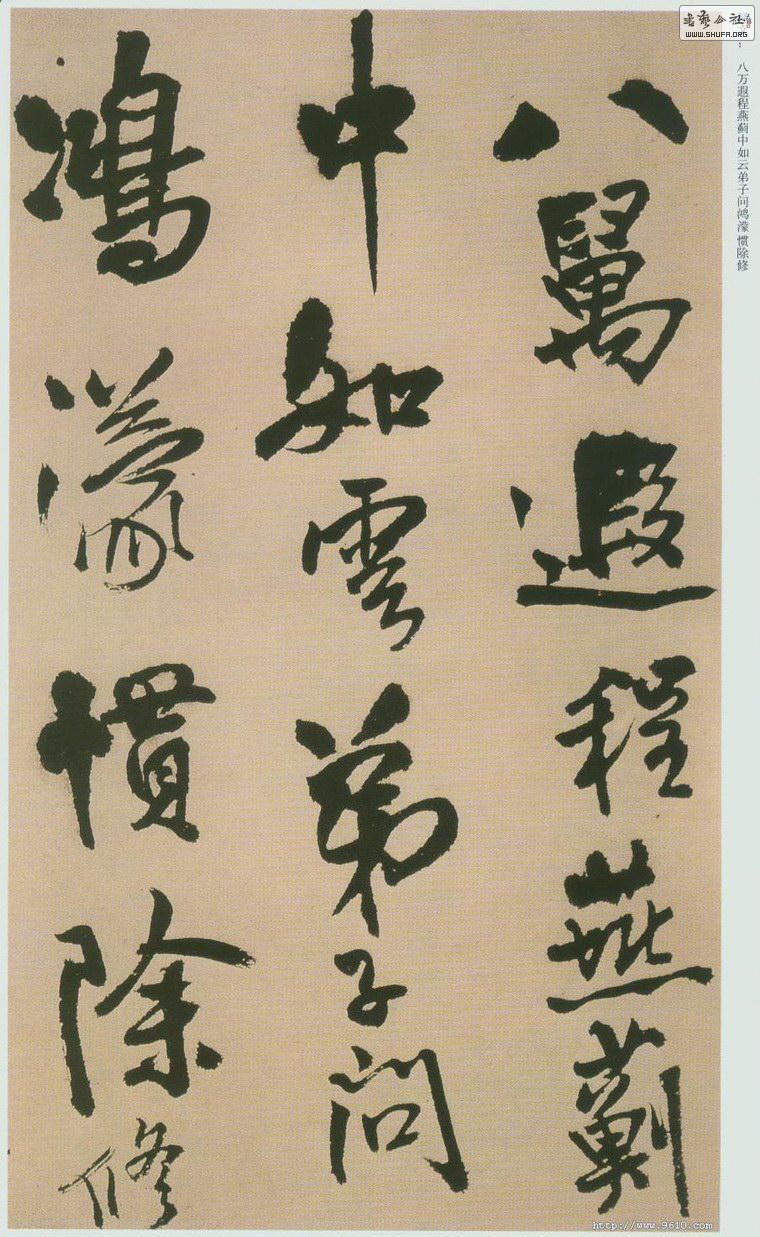 八萬遐程燕薊
中如雲弟子问
鴻濛慣除修
：八万遐程燕蓟中如云弟子问鸿濛惯除修
WWW.SHUFA.ORG
http://www.9610.com